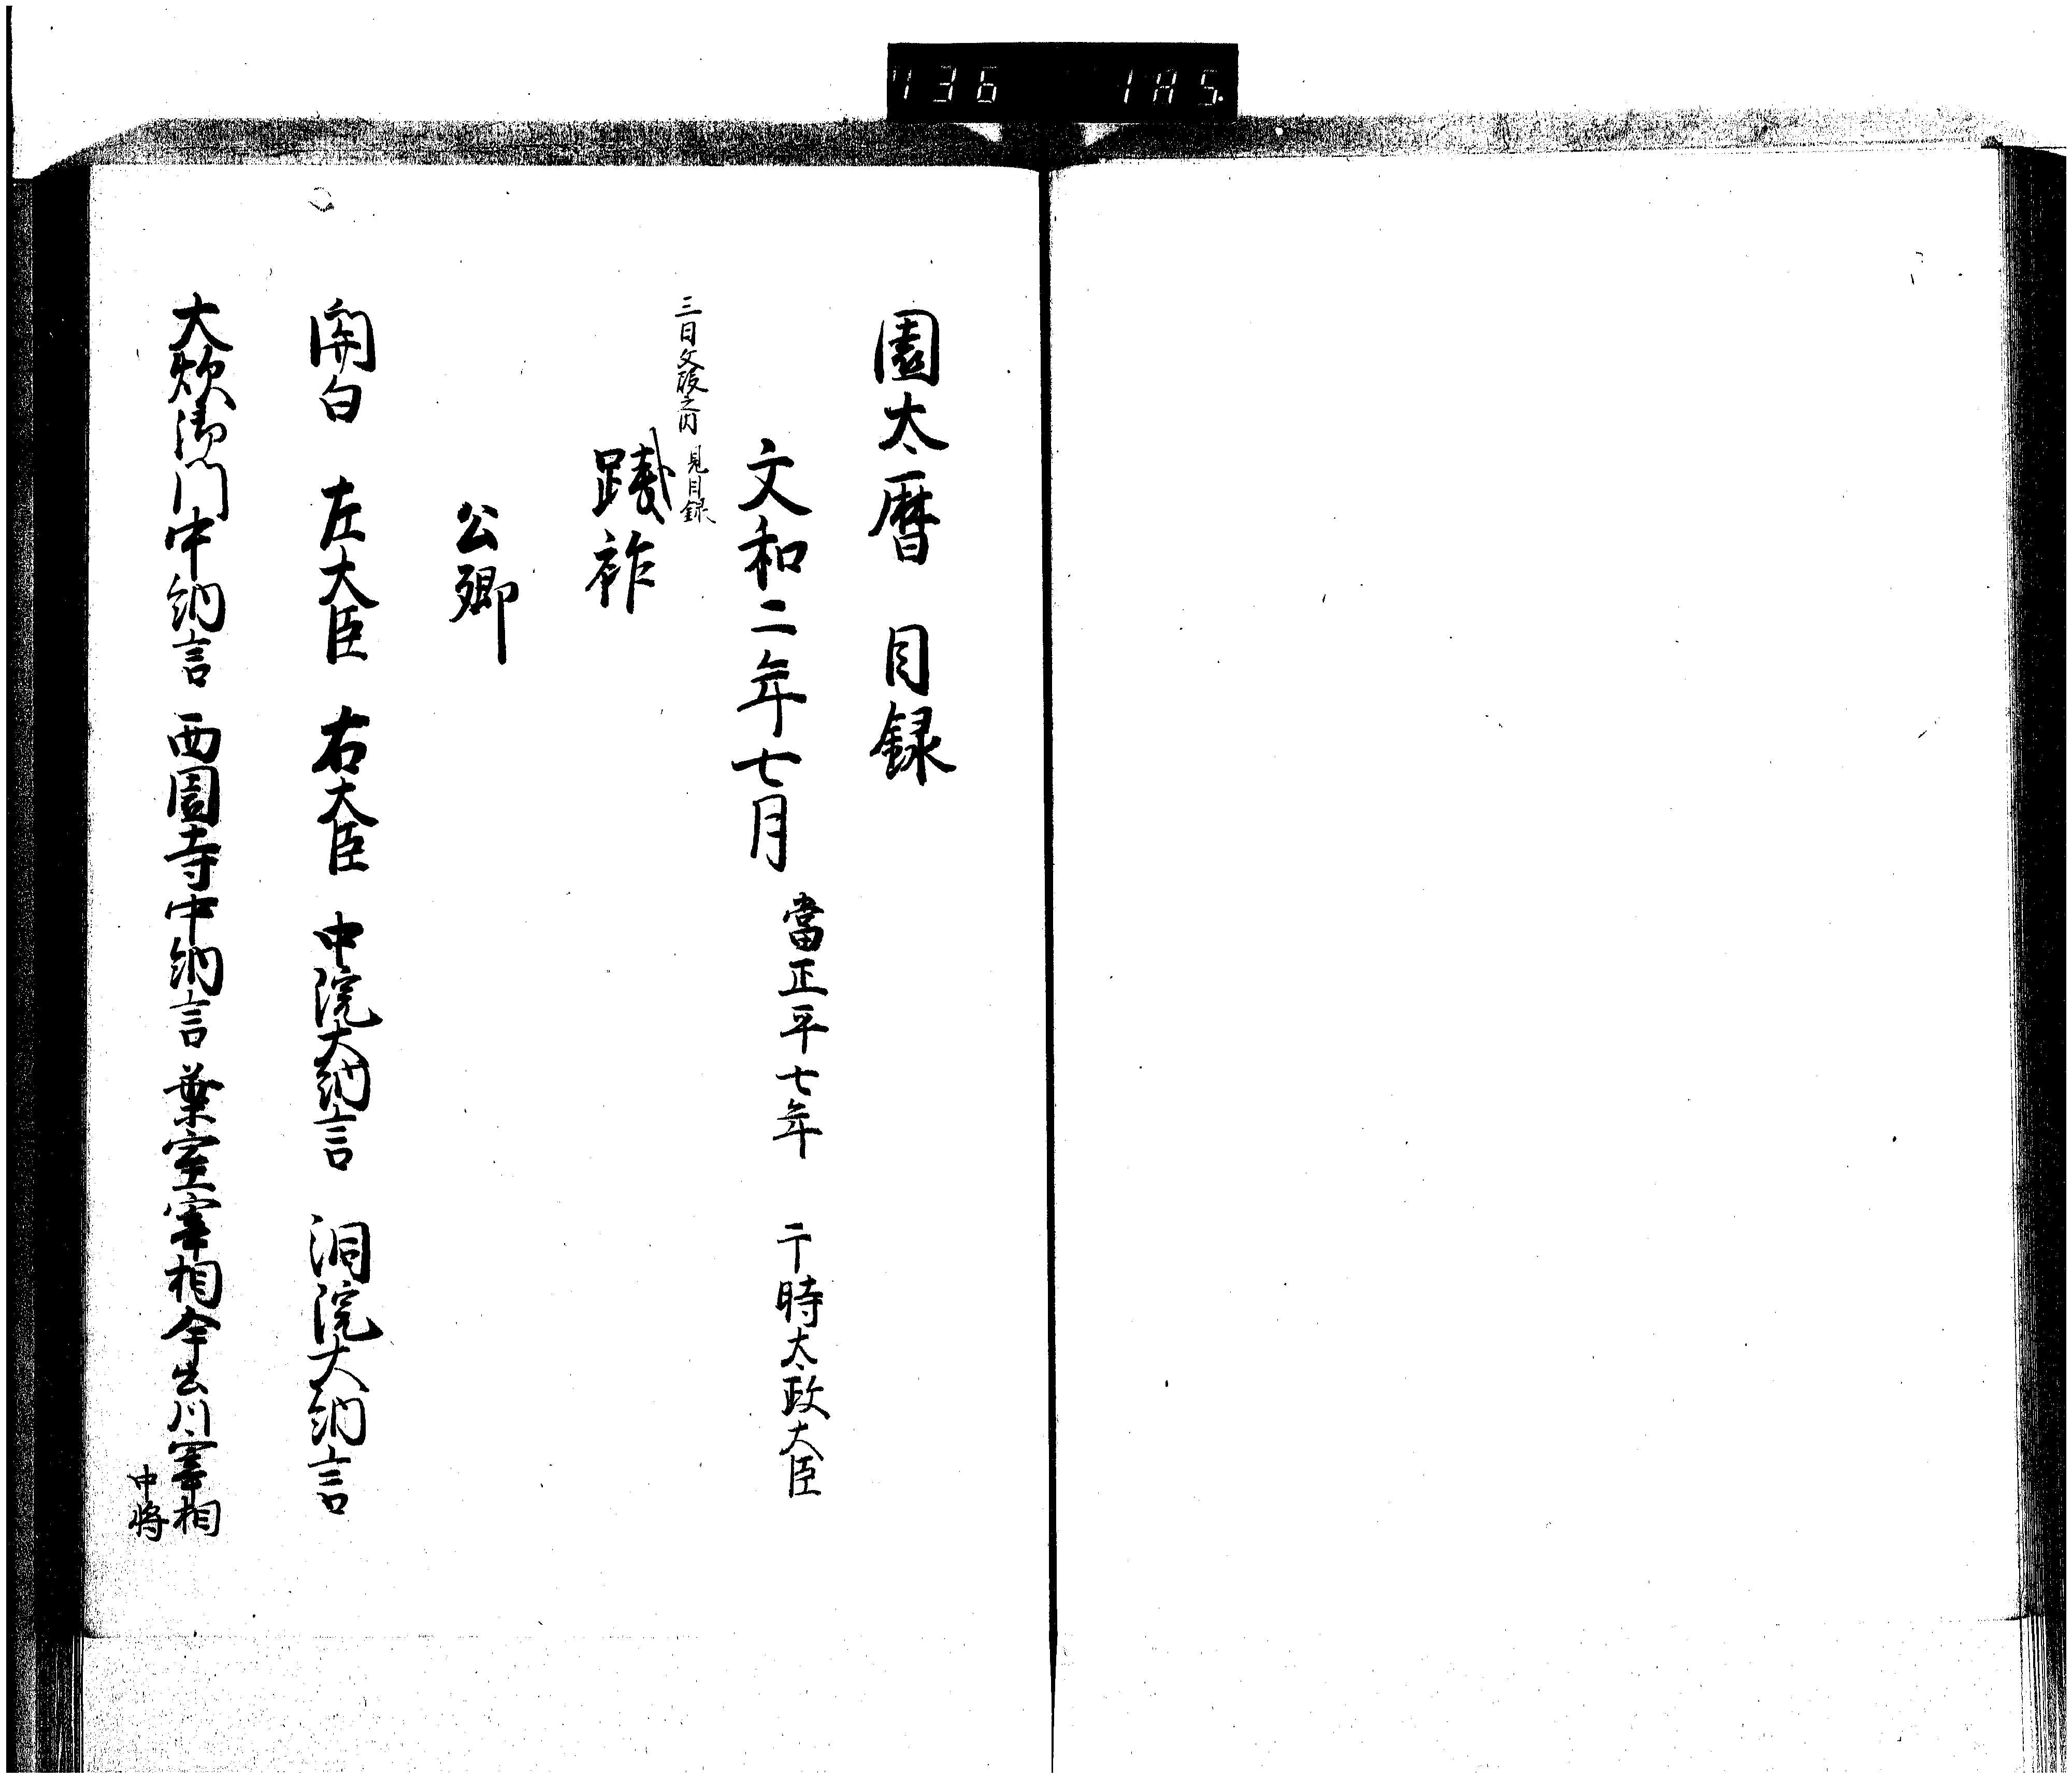 736 185
園太暦 目録
文和二年七月 當正平七年 于時太政大臣
三日文殿之内 見目録
踐祚
公卿
関白 左大臣 右大臣 中院大納言 洞院大納言
大炊御門中納言 西園寺中納言 葉室宰相 今出川宰相中将